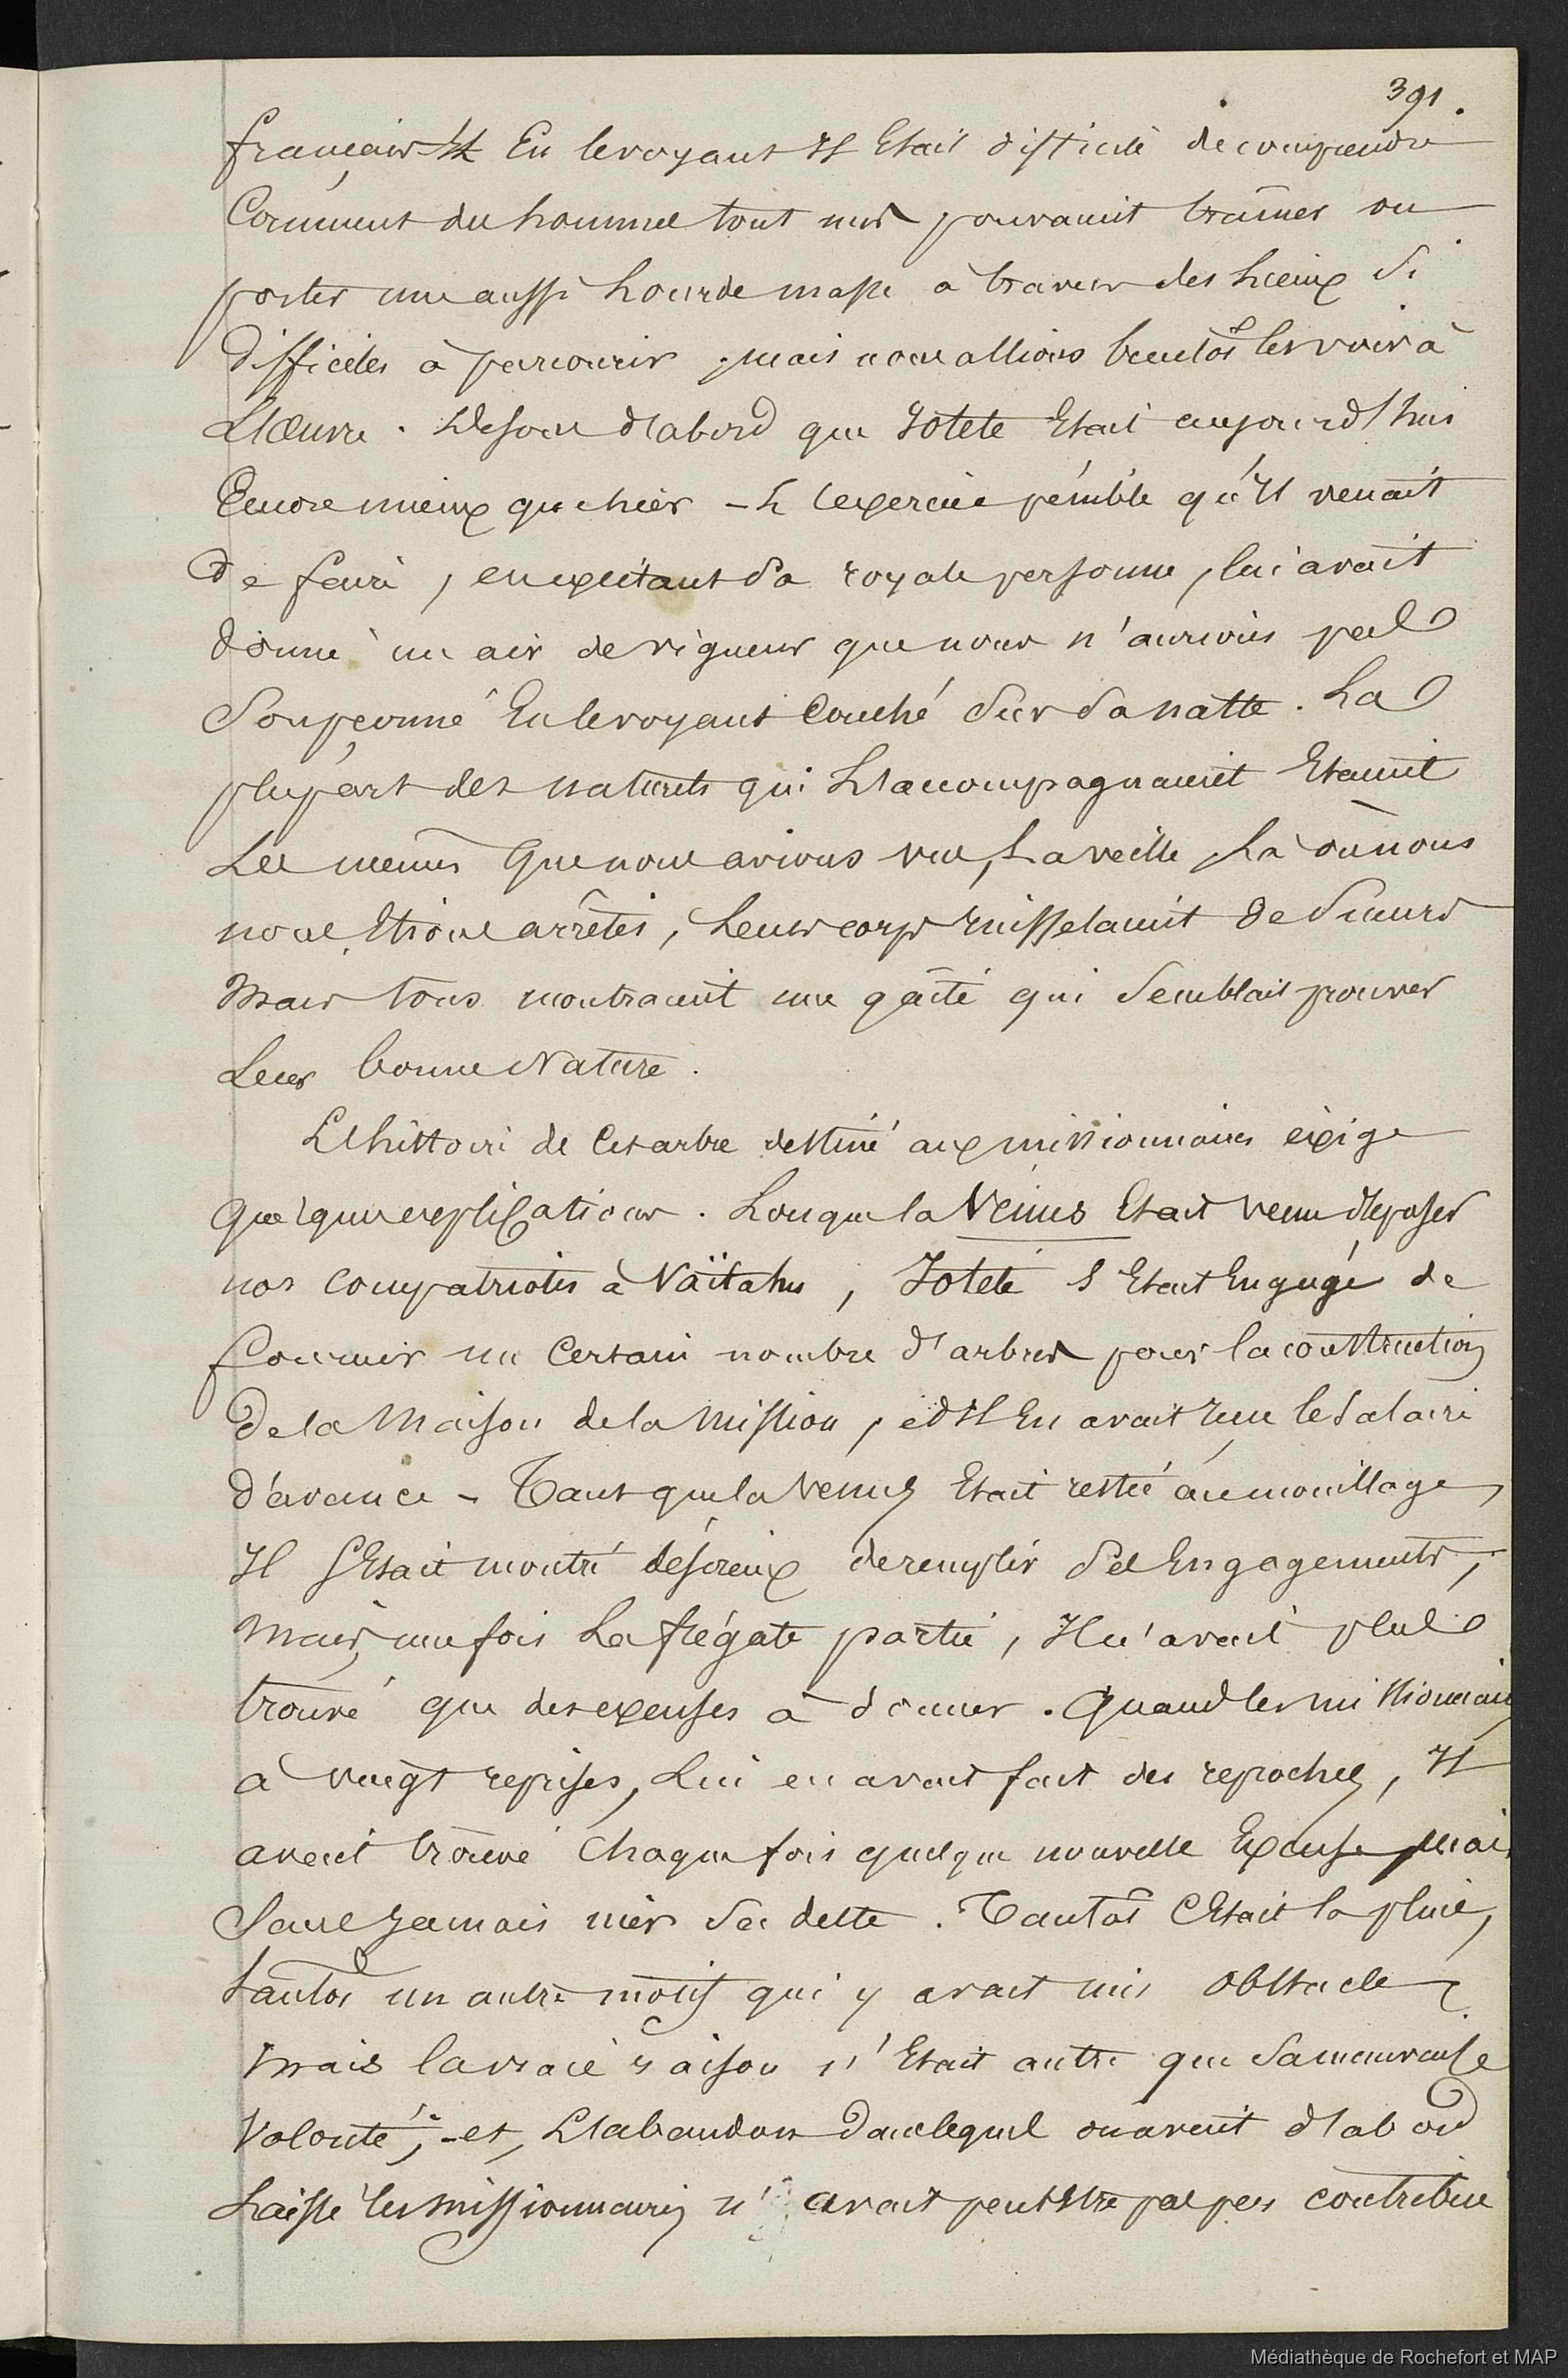 391.
français. Il En le voyant Il Etait difficile de comprendre
Comment des hommes tout nus pouvaient traîner ou
porter une aussi Lourde masse à travers des Lieux Si
difficiles à parcourir, mais nous allions bientôt les voir à
L'Œuvre. Disons d'abord que Iotété Etait aujourd'hui
Encore mieux que hier - L'exercice pénible qu'Il venait
de faire, en excitant Sa royale personne, lui avait
donné un air de vigueur que nous n'aurions pas
Soupçonné En le voyant Couché Sur Sa natte. La
plupart des naturels qui L'accompagnaient Etaient
Les mêmes Que nous avions vus, La veille, Là où nous
nous Etions arrêtés, Leurs corps ruisselaient de Sueurs
Mais tous montraient une gaîté qui Semblait prouver
Leur bonne Nature.
L'histoire de Cet arbre destiné aux missionnaires éxige
Quelques explications. Lorsque la Vénus Etait venu déposer
nos compatriotes à Vaïtahu, Iotété S'Etait Engagé de
fournir un Certain nombre d'arbres pour la construction
De la Maison de la Mission, et Il En avait reçu le Salaire
d'avance - Tant que la Venus Etait restée au mouillage,
Il S'Etait montré désireux de remplir Ses Engagements,
Mais, une fois La frégate partie, Il n'avait plus
trouvé que des excuses à donner. Quand les missionnaires
à vingt reprises, Lui en avait fait des reproches, Il
avait trouvé Chaque fois quelque nouvelle Excuse, Mais
Sans Jamais nier Sa dette. Tantôt C'Etait la pluie,
tantôt un autre motif qui y avait mis obstacle,
Mais la vraie raison n'Etait autre que Sa mauvaise
Volonté; - et, L'abandon dans lequel on avait d'abord
Laissé les missionnaires n' avait peut Etre pas peu contribué
Médiathèque de Rochefort et MAP